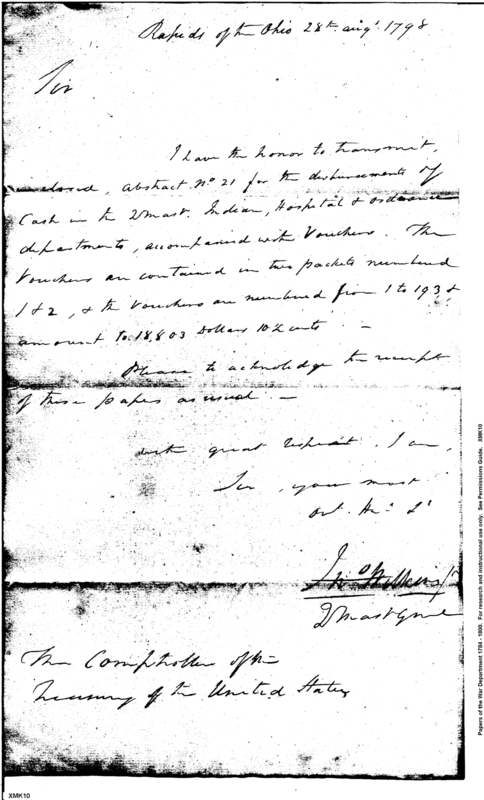 Rapids of the Ohio 28th augt. 1798
Sir
I have the honor to transmit,
enclosed, abstract No 21 for the disbursements of
Cash in the Qmast. Indian, Hospital & ordnance
departments, accompanied with Vouchers. The
Vouchers are contained in two packets numbered
1 & 2, & the Vouchers are numbered from 1 to 193 &
amount to 18,803 Dollars 10½ cents –
Please to acknoledge the receipt
of these papers as usual –
with great respect, I am,
Sir, your most
obt. Hu. St
Jno Wilkins Jr
QMast Genl
The Comptroller of the
Treasury of the United States
Papers of the War Department 1784 - 1800. For research and instructional use only. See Permissions Guide. XMK10
XMK10